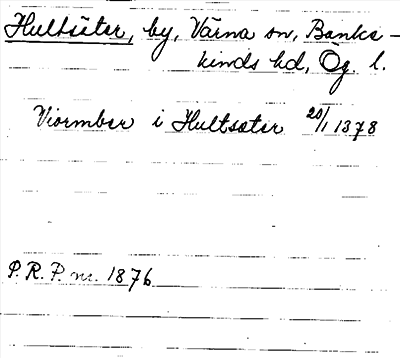 Hultsäter, by, Värna sn, Banke-
kinds hd, Ög. l.
Viormber i Hultsæter 20/1 1378
P.R.P. nr. 1876